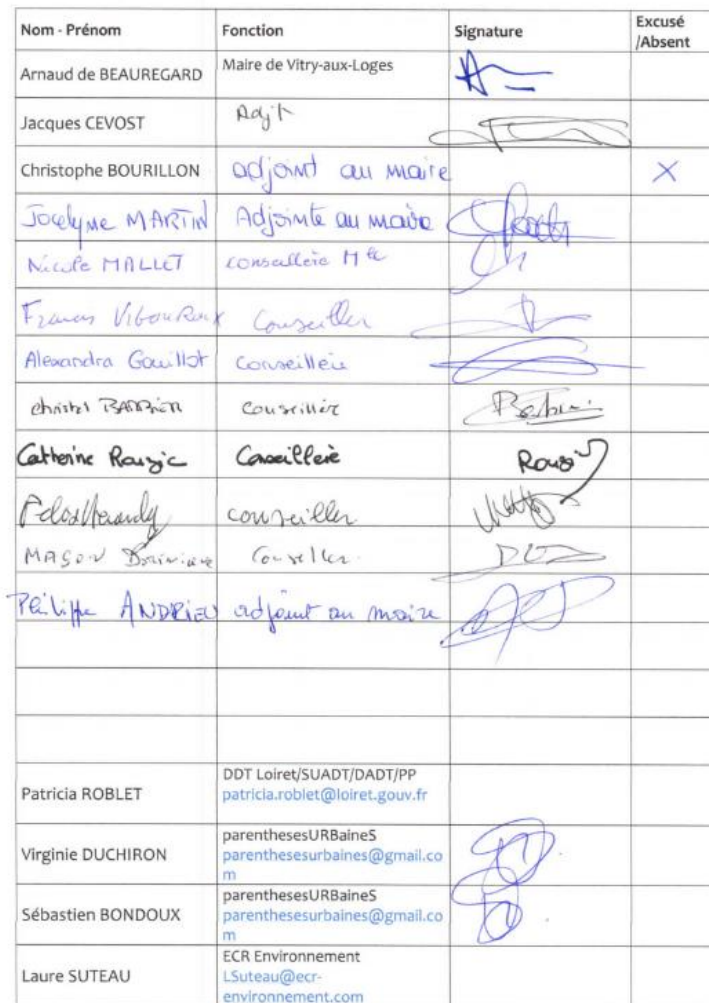 Nom - Prénom Fonction Signature Excusé
/Absent
Arnaud de BEAUREGARD Maire de Vitry-aux-Loges
Jacques CEVOST Adjt
Christophe BOURILLON adjoint au maire X
Jocelyne MARTIN Adjointe au maire
Nicole MALLET conseillère Mle
Conseiller
Alexandra Gouillot Conseillère
christel BARBIER conseillère
Catherine Rouzic Conseillère Rouzi
conseiller
MASON Conseiller
Philippe ANDRIEU adjoint au maire
Patricia ROBLET DDT Loiret/SUADT/DADT/PP
patricia.roblet@loiret.gouv.fr
Virginie DUCHIRON parenthesesURBaineS
parenthesesurbaines@gmail.co
m
Sébastien BONDOUX parenthesesURBaineS
parenthesesurbaines@gmail.co
m
Laure SUTEAU ECR Environnement
LSuteau@ecr-
environnement.com